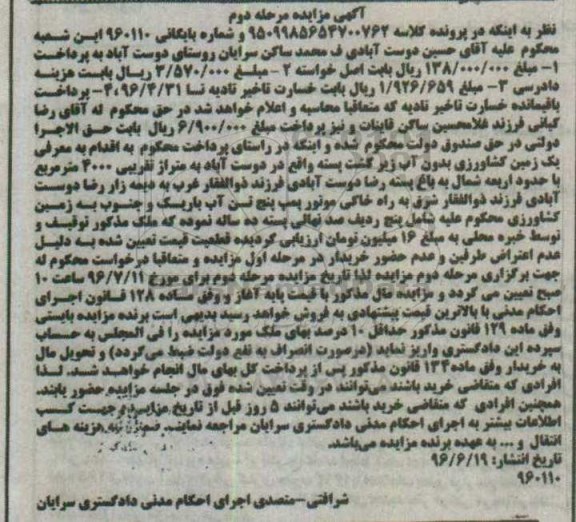 آگهی مزایده مرحله دوم
نظر به اینکه در پرونده کلاسه ۹۵۰۹۹۸۵۶۵۴۷۰۰۷۶۲ و شماره بایگانی ۹۶۰۱۱۰ این شعبه
محکوم علیه آقای حسین دوست آبادی ف محمد ساکن سرایان روستای دوست آباد به پرداخت
۱- مبلغ ۱۳۸/۰۰۰/۰۰۰ ریال بابت اصل خواسته ۲- مبلغ ۳/۵۷۰/۰۰۰ ریال بابت هزینه
دادرسی ۳- مبلغ ۱/۹۲۶/۶۵۹ ریال بابت خسارت تاخیر تادیه تا ۹۶/۴/۳۱ ۴- پرداخت
باقیمانده خسارت تاخیر تادیه که متعاقبا محاسبه و اعلام خواهد شد در حق محکوم له آقای رضا
کیانی فرزند غلامحسین ساکن قاینات و نیز پرداخت مبلغ ۶/۹۰۰/۰۰۰ ریال بابت حق الاجرا
دولتی در حق صندوق دولت محکوم شده و اینکه در راستای پرداخت محکوم به اقدام به معرفی
یک زمین کشاورزی بدون آب زیر کشت پسته واقع در دوست آباد به متراژ تقریبی ۴۰۰۰ مترمربع
با حدود اربعه شمال به باغ پسته رضا دوست آبادی فرزند ذوالفقار غرب به دیمه زار رضا دوست
آبادی فرزند ذوالفقار شرق به راه خاکی موتور پمپ پنج تن آب باریک و جنوب به زمین
کشاورزی محکوم علیه شامل پنج ردیف صد نهالی پسته ده ساله نموده که ملک مذکور توقیف و
توسط خبره محلی به مبلغ ۱۶ میلیون تومان ارزیابی گردیده قطعیت قیمت تعیین شده به دلیل
عدم اعتراض طرفین و عدم حضور خریدار در مرحله اول مزایده و متعاقبا درخواست محکوم له
جهت برگزاری مرحله دوم مزایده لذا تاریخ مزایده مرحله دوم برای مورخ ۹۶/۷/۱۱ ساعت ۱۰
صبح تعیین می گردد و مزایده مال مذکور با قیمت پایه آغاز و وفق ماده ۱۲۸ قانون اجرای
احکام مدنی با بالاترین قیمت پیشنهادی به فروش خواهد رسید بدیهی است برنده مزایده بایستی
وفق ماده ۱۲۹ قانون مذکور حداقل ۱۰ درصد بهای ملک مورد مزایده را فی المجلس به حساب
سپرده این دادگستری واریز نماید (درصورت انصراف به نفع دولت ضبط می‌گردد) و تحویل مال
به خریدار وفق ماده ۱۳۴ قانون مذکور پس از پرداخت کل بهای مال انجام خواهد شد. لذا
افرادی که متقاضی خرید باشند می‌توانند در وقت تعیین شده فوق در جلسه مزایده حضور یابند.
همچنین افرادی که متقاضی خرید باشند می‌توانند ۵ روز قبل از تاریخ مزایده جهت کسب
اطلاعات بیشتر به اجرای احکام مدنی دادگستری سرایان مراجعه نمایند. هزینه های
انتقال و ... به عهده برنده مزایده می‌باشد.
تاریخ انتشار: ۹۶/۶/۱۹
۹۶۰۱۱۰
شرافتی-متصدی اجرای احکام مدنی دادگستری سرایان